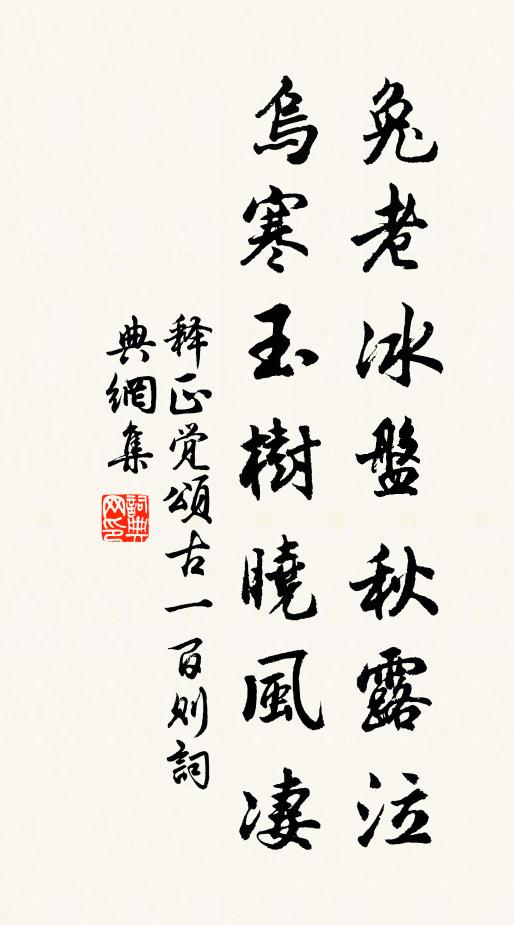 兔老冰盤秋露泣
烏寒玉樹曉風凄
释正觉頌古一百则詞
典網集
詞典网印